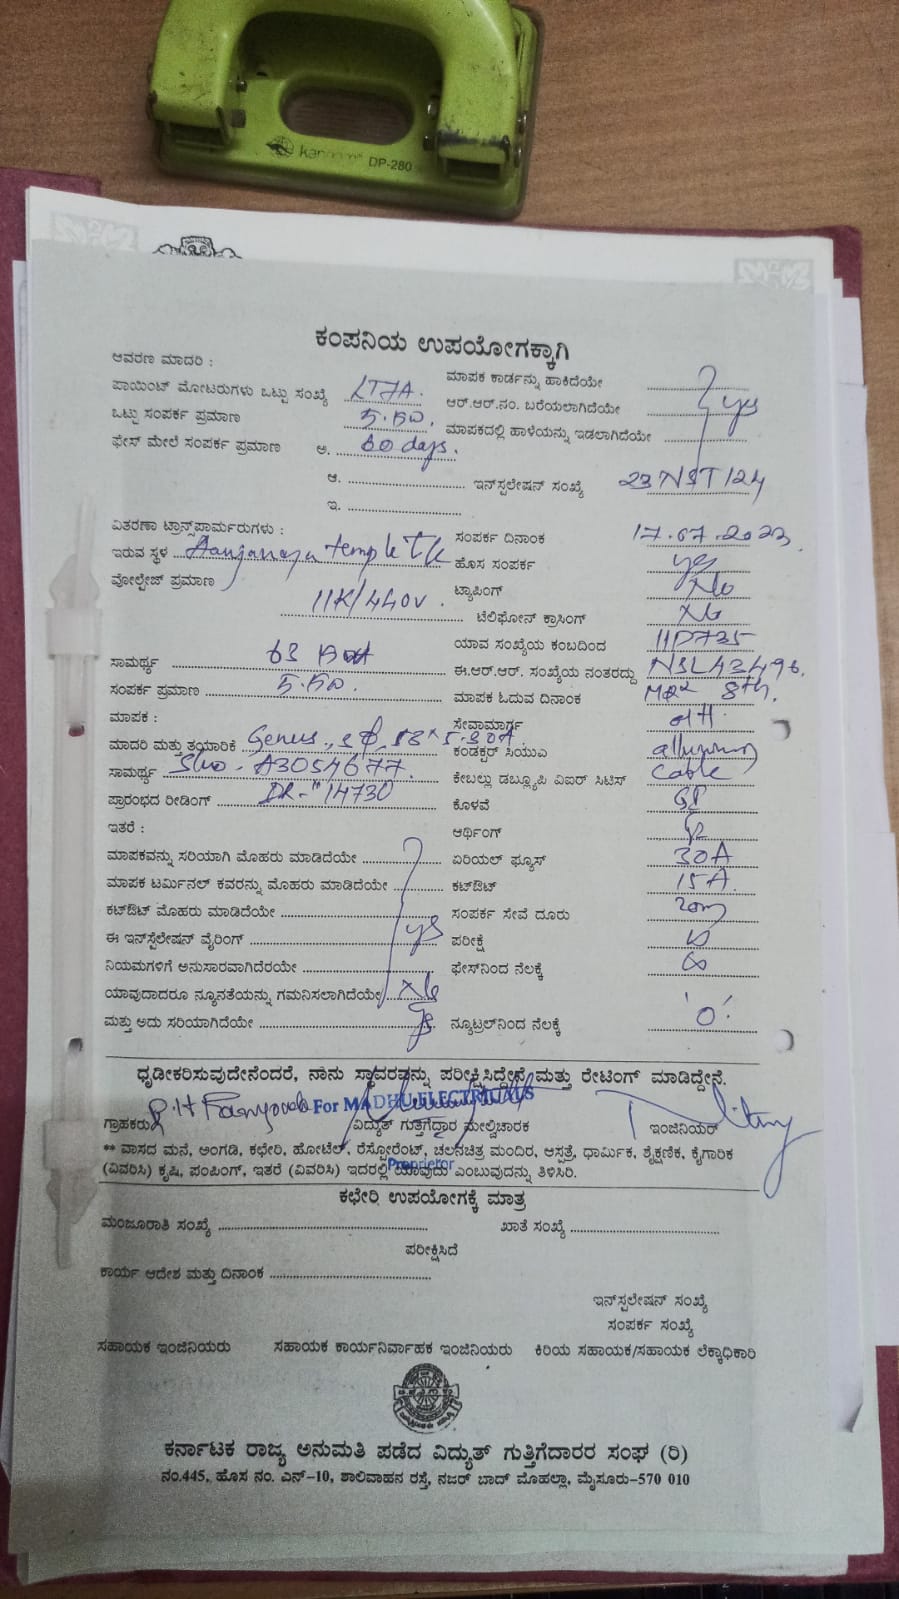 DP-280
ಕಂಪನಿಯ ಉಪಯೋಗಕ್ಕಾಗಿ
ಆವರಣ ಮಾದರಿ :
ಮಾಪಕ ಕಾರ್ಡನ್ನು ಹಾಕಿದೆಯೇ
ಪಾಯಿಂಟ್ ಮೋಟರುಗಳು ಒಟ್ಟು ಸಂಖ್ಯೆ LT7A.
ಆರ್.ಆರ್.ನಂ. ಬರೆಯಲಾಗಿದೆಯೇ yes
ಒಟ್ಟು ಸಂಪರ್ಕ ಪ್ರಮಾಣ
ಮಾಪಕದಲ್ಲಿ ಹಾಳೆಯನ್ನು ಇಡಲಾಗಿದೆಯೇ
ಫೇಸ್ ಮೇಲೆ ಸಂಪರ್ಕ ಪ್ರಮಾಣ ಅ. 60 days.
ಆ. ಇನ್‌ಸ್ಟಲೇಷನ್ ಸಂಖ್ಯೆ 23NST124
ಇ.
ವಿತರಣಾ ಟ್ರಾನ್ಸ್‌ಫಾರ್ಮರುಗಳು :
ಸಂಪರ್ಕ ದಿನಾಂಕ 17.07.2023.
ಇರುವ ಸ್ಥಳ temple
ಹೊಸ ಸಂಪರ್ಕ yes
ವೋಲ್ಟೇಜ್ ಪ್ರಮಾಣ 11K/440V.
ಟ್ಯಾಪಿಂಗ್ No
ಟೆಲಿಫೋನ್ ಕ್ರಾಸಿಂಗ್ No
ಯಾವ ಸಂಖ್ಯೆಯ ಕಂಬದಿಂದ 11P735
ಸಾಮರ್ಥ್ಯ 63
ಈ.ಆರ್.ಆರ್. ಸಂಖ್ಯೆಯ ನಂತರದ್ದು NSL43496.
ಸಂಪರ್ಕ ಪ್ರಮಾಣ
ಮಾಪಕ ಓದುವ ದಿನಾಂಕ 8th.
ಮಾಪಕ :
ಸೇವಾಮಾರ್ಗ OH
ಮಾದರಿ ಮತ್ತು ತಯಾರಿಕೆ Genus,
ಕಂಡಕ್ಟರ್ ಸಿಯುಎ
ಸಾಮರ್ಥ್ಯ Slno. A3054677.
ಕೇಬಲ್ಲು ಡಬ್ಲ್ಯೂಪಿ ಎಐರ್ ಸಿಟಿಸ್ Cable
ಪ್ರಾರಂಭದ ರೀಡಿಂಗ್ 14730
ಕೊಳವೆ GI
ಇತರೆ :
ಆರ್ಥಿಂಗ್
ಮಾಪಕವನ್ನು ಸರಿಯಾಗಿ ಮೊಹರು ಮಾಡಿದೆಯೇ
ಏರಿಯಲ್ ಫ್ಯೂಸ್ 30A
ಮಾಪಕ ಟರ್ಮಿನಲ್ ಕವರನ್ನು ಮೊಹರು ಮಾಡಿದೆಯೇ
ಕಟ್‌ಔಟ್ 15A.
ಕಟ್‌ಔಟ್ ಮೊಹರು ಮಾಡಿದೆಯೇ yes
ಸಂಪರ್ಕ ಸೇವೆ ದೂರು 20m
ಈ ಇನ್‌ಸ್ಟೆಲೇಷನ್ ವೈರಿಂಗ್
ಪರೀಕ್ಷೆ
ನಿಯಮಗಳಿಗೆ ಅನುಸಾರವಾಗಿದೆರಯೇ
ಫೇಸ್‌ನಿಂದ ನೆಲಕ್ಕೆ ∞
ಯಾವುದಾದರೂ ನ್ಯೂನತೆಯನ್ನು ಗಮನಿಸಲಾಗಿದೆಯೇ No
ಮತ್ತು ಅದು ಸರಿಯಾಗಿದೆಯೇ yes
ನ್ಯೂಟ್ರಲ್‌ನಿಂದ ನೆಲಕ್ಕೆ 'O'
ಧೃಡೀಕರಿಸುವುದೇನೆಂದರೆ, ನಾನು ಸ್ಥಾವರವನ್ನು ಪರೀಕ್ಷಿಸಿದ್ದೇನೆ ಮತ್ತು ರೇಟಿಂಗ್ ಮಾಡಿದ್ದೇನೆ.
For MADHU ELECTRICALS
ಗ್ರಾಹಕರು ವಿದ್ಯುತ್ ಗುತ್ತಿಗೆದ್ದಾರ ಮೇಲ್ವಿಚಾರಕ ಇಂಜಿನಿಯರ್
** ವಾಸದ ಮನೆ, ಅಂಗಡಿ, ಕಛೇರಿ, ಹೋಟೆಲ್, ರೆಸ್ಟೋರೆಂಟ್, ಚಲನಚಿತ್ರ ಮಂದಿರ, ಆಸ್ಪತ್ರೆ, ಧಾರ್ಮಿಕ, ಶೈಕ್ಷಣಿಕ, ಕೈಗಾರಿಕ
(ವಿವರಿಸಿ) ಕೃಷಿ, ಪಂಪಿಂಗ್, ಇತರೆ (ವಿವರಿಸಿ) ಇದರಲ್ಲಿ ಯಾವುದು ಎಂಬುವುದನ್ನು ತಿಳಿಸಿರಿ.
Proprietor
ಕಛೇರಿ ಉಪಯೋಗಕ್ಕೆ ಮಾತ್ರ
ಮಂಜೂರಾತಿ ಸಂಖ್ಯೆ ಖಾತೆ ಸಂಖ್ಯೆ
ಪರೀಕ್ಷಿಸಿದೆ
ಕಾರ್ಯ ಆದೇಶ ಮತ್ತು ದಿನಾಂಕ
ಇನ್‌ಸ್ಟಲೇಷನ್ ಸಂಖ್ಯೆ
ಸಂಪರ್ಕ ಸಂಖ್ಯೆ
ಸಹಾಯಕ ಇಂಜಿನಿಯರು ಸಹಾಯಕ ಕಾರ್ಯನಿರ್ವಾಹಕ ಇಂಜಿನಿಯರು ಕಿರಿಯ ಸಹಾಯಕ/ಸಹಾಯಕ ಲೆಕ್ಕಾಧಿಕಾರಿ
ಕರ್ನಾಟಕ ರಾಜ್ಯ ಅನುಮತಿ ಪಡೆದ ವಿದ್ಯುತ್ ಗುತ್ತಿಗೆದಾರರ ಸಂಘ (ರಿ)
ನಂ.445, ಹೊಸ ನಂ. ಎನ್-10, ಶಾಲಿವಾಹನ ರಸ್ತೆ, ನಜರ್ ಬಾದ್ ಮೊಹಲ್ಲಾ, ಮೈಸೂರು-570 010